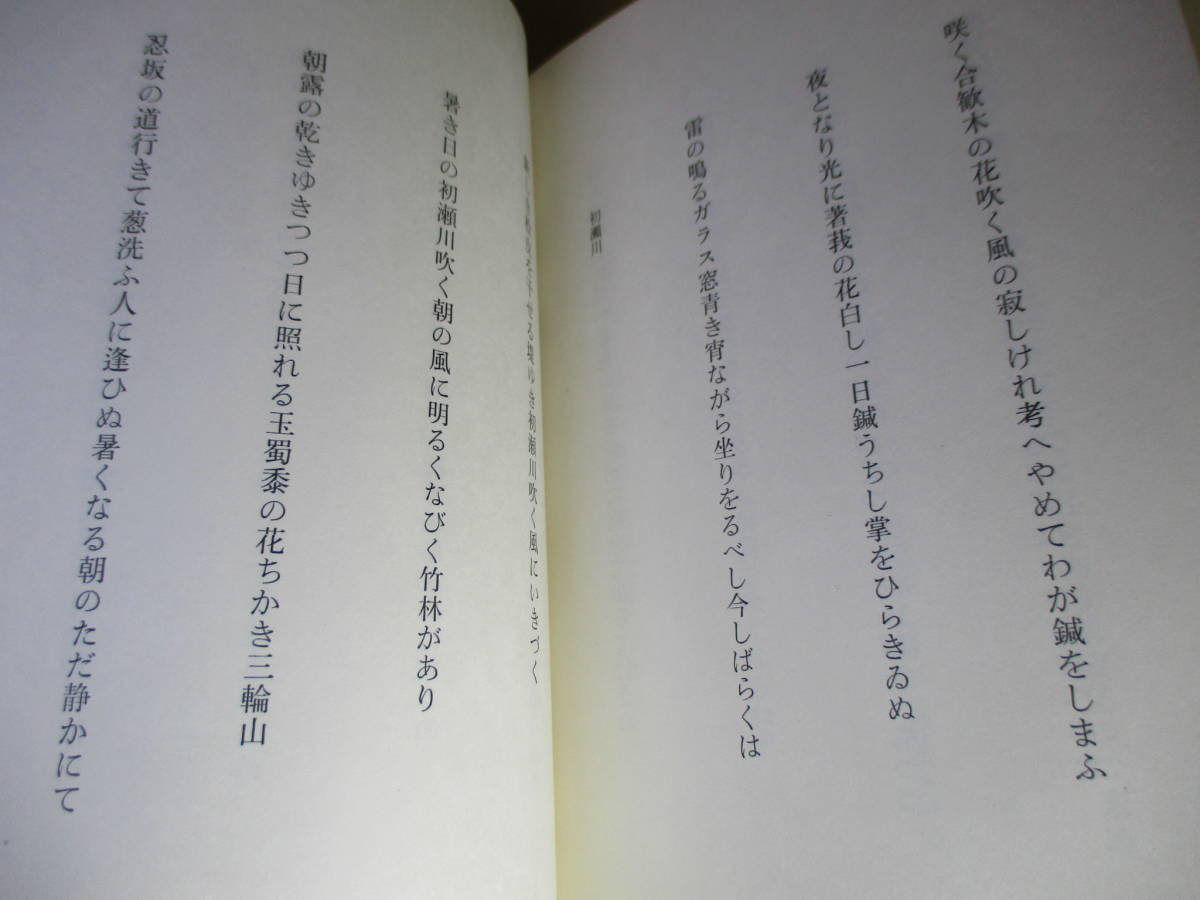 咲く合歓木の花吹く風の寂しけれ考へやめてわが鍼をしまふ
夜となり光に著莪の花白し一日鍼うちし掌をひらきゐぬ
雷の鳴るガラス窓青き宵ながら坐りをるべし今しばらくは
初瀬川
せる堤ゆき初瀬川吹く風にいきづく
暑き日の初瀬川吹く朝の風に明るくなびく竹林があり
朝露の乾きゆきつつ日に照れる玉蜀黍の花ちかき三輪山
忍坂の道行きて葱洗ふ人に逢ひぬ暑くなる朝のただ静かにて